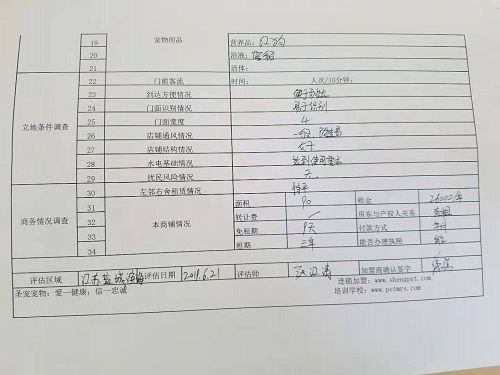 19 宠物用品 营养品：红狗
20 浴液：
21 活体：
立地条件调查
22 门前客流 时间： 人次/10分钟：
23 到达方便情况 易于到达
24 门面识别情况 易于识别
25 门面宽度 4
26 店铺通风情况 一般
27 店铺结构情况
28 水电基础情况 达到使用要求
29 扰民风险情况 无
商务情况调查
30 左邻右舍租赁情况 持平
31 本商铺情况 面积 90 租金 26000/年
32 转让费 / 房东与产权人关系
33 免租期 9天 付款方式 年付
34 租期 三年 能否办理执照 能
评估区域 江苏盐城 评估日期 2019.6.21 评估师 加盟商确认签字
圣宠宠物：爱一健康；信一忠诚 连锁加盟：www.shengpet.com
培训学校：www.petmrs.com